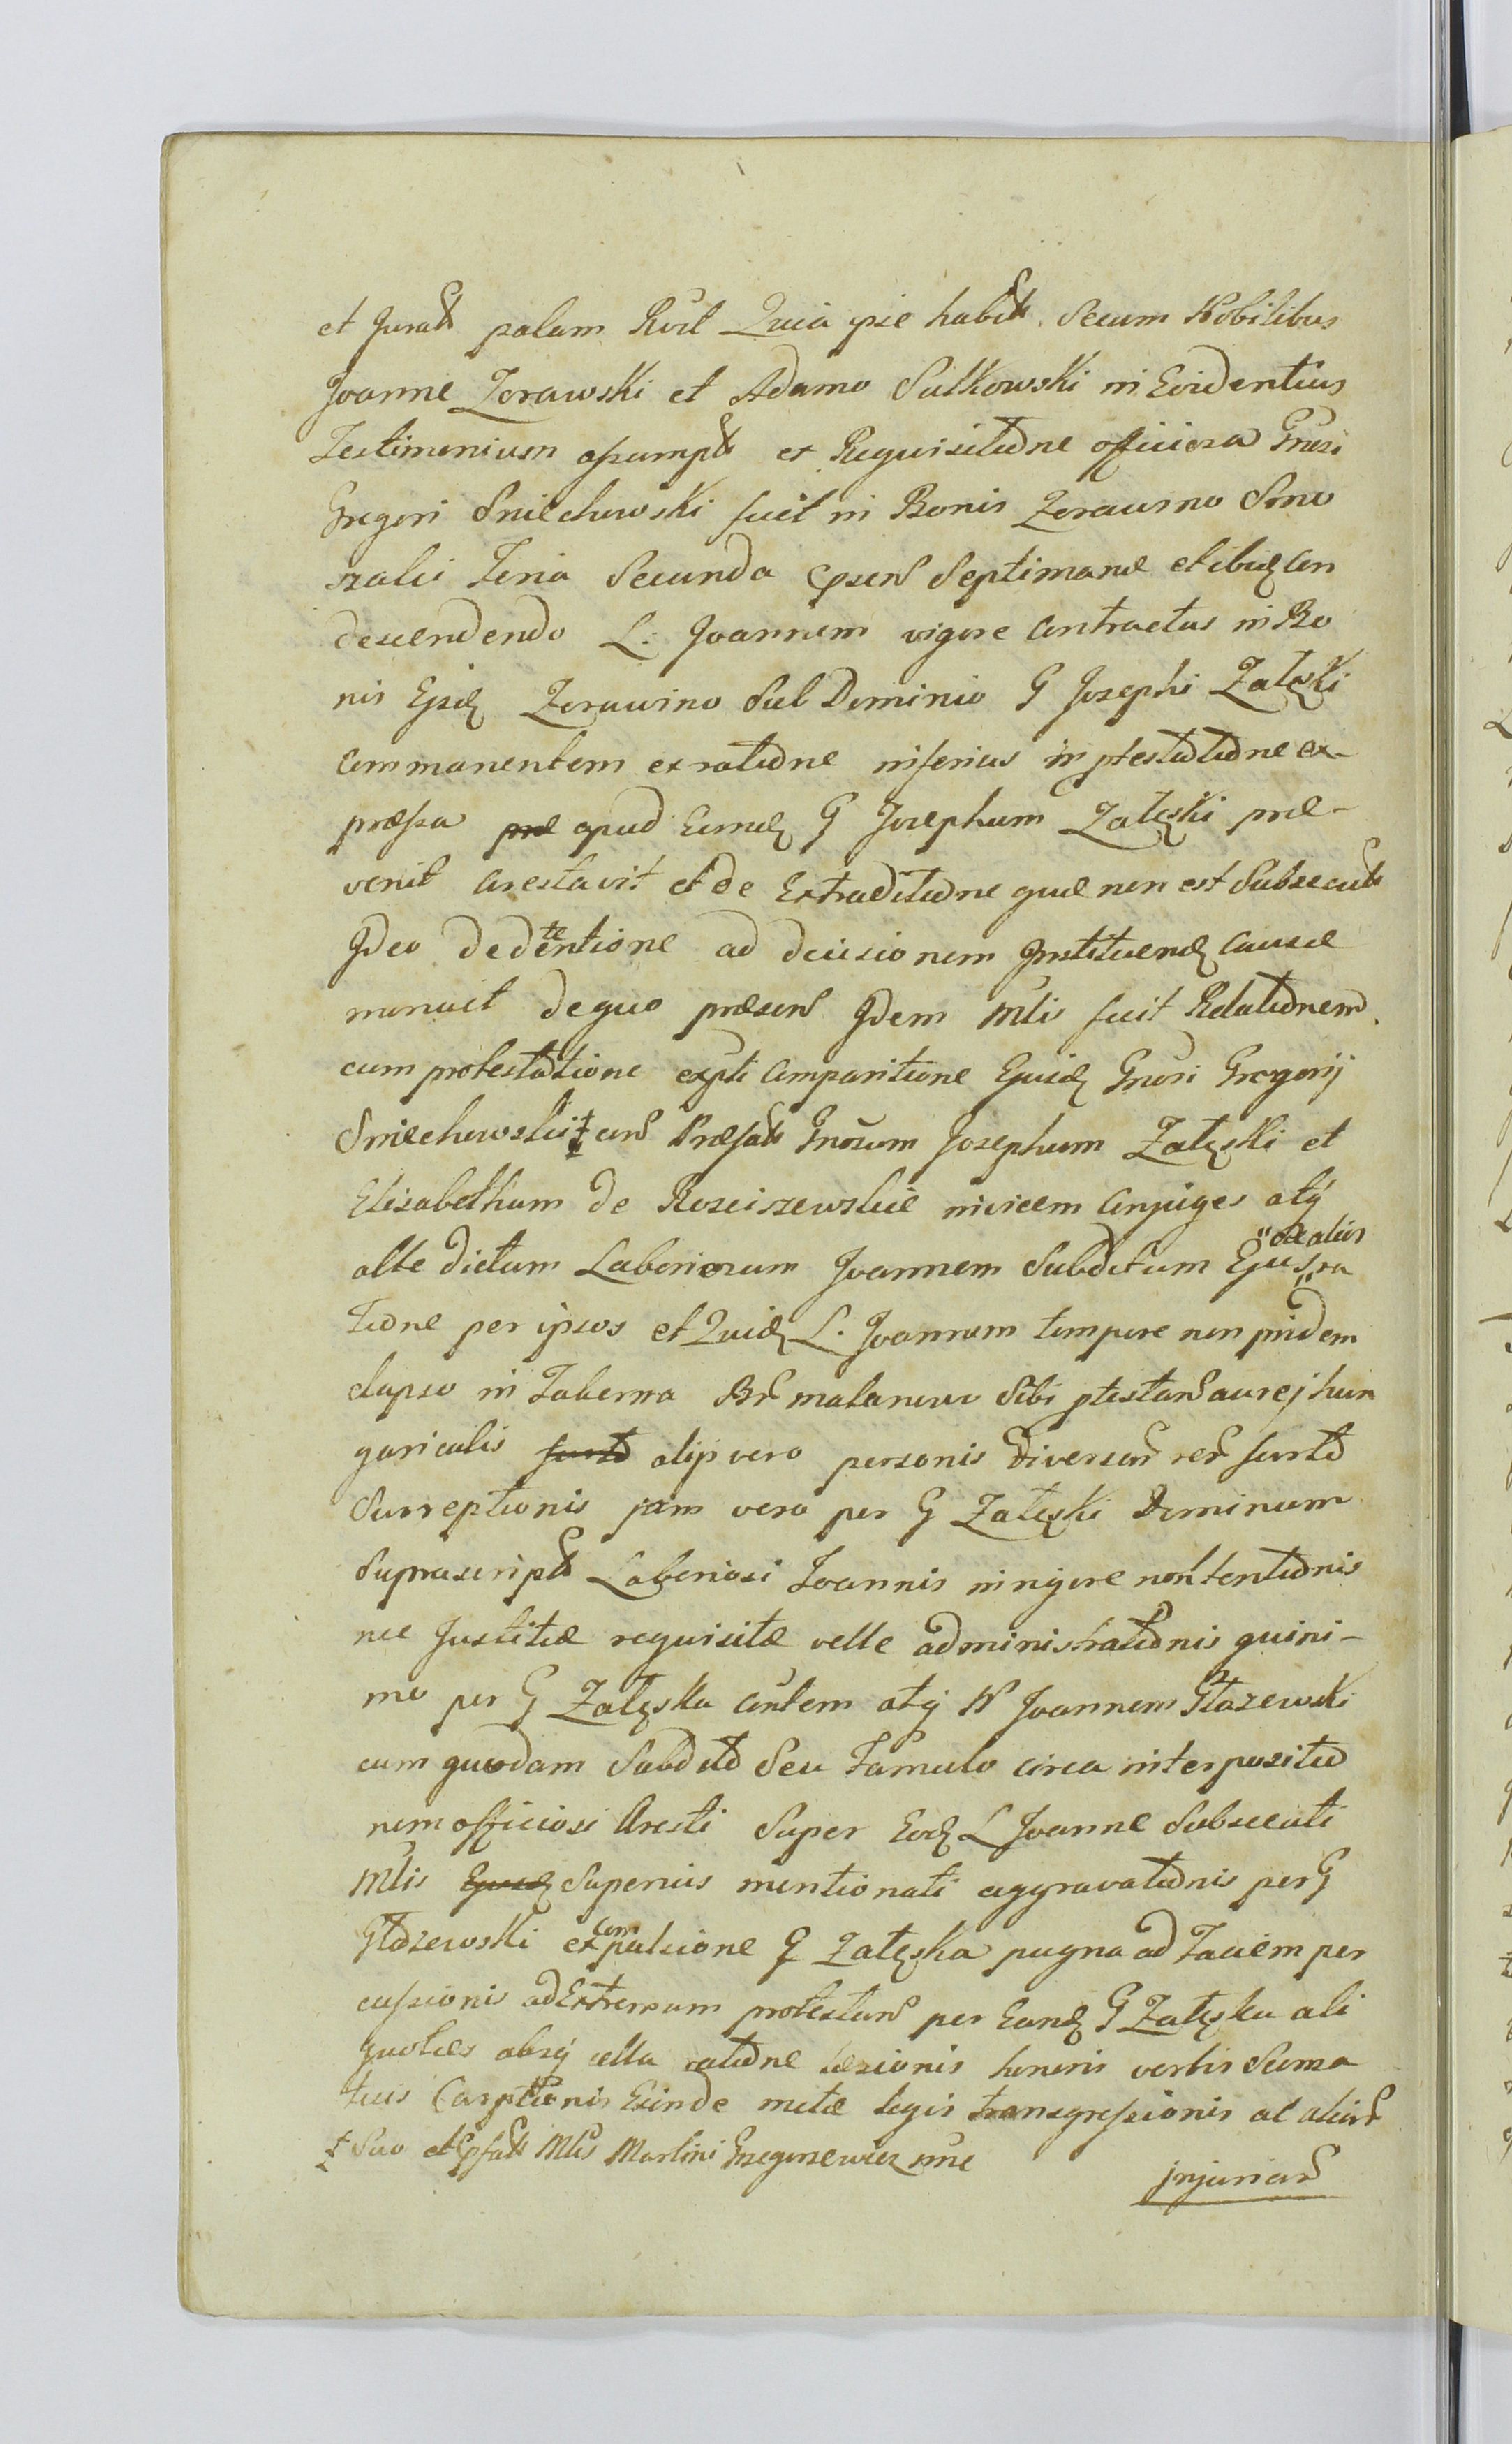 et Jurats palam Rcit Quia ipse habits Secum Nobilibus
Joanne Zorawski et Adamo Sulkowski in Evidentius
Testimonium assumpts ex Requisitione officiosa Gnosi
Gregori Sniechowski fuit in Bonis Zorawino Smo
szalei Feria Secunda psen Septimanæ et ibidq con
descendendo L: Joannem vigore Contractus in Bo
nis Ejsdq Zorawino Sub Dominio G Josephi Załęski
Commanentem ex ratione inferius in ptestatione ex-
præssa apud Eumdq G Josephum Załęski præ-
venit arestavit et de Extraditione quæ non est Subsecuts
Jdeo de detentione ad decisionem Instituendq Causæ
monuit de quo præsens Jdem Mlis fecit Relationem
cum protestatione expti Comparitione Ejusdq Gnosi Gregorij
Sniechowski ‡ cons Præfats Gnosum Josephum Załęski et
Elisabetham de Rosciszewskie invicem Conjuges atq
alte dictum Laboriosum Joannem Subditum Ejus " de aliis
ra
tione per ipsos et Quidq L. Joannem tempore non pridem
elapso in Taberna Br malanow Sibi ptestans aurej hun
garicalis alijs vero personis diversar rer furto
Surreptionis jam vero per G Załęski Dominum
Suprascripts Laboriosi Joannis in rigore non tentionis
nec Justitiæ requisitæ velle administrationis quini-
mo per G Załęska Conlem atq N Joannem Głazewski
cum quodam Subdito Seu Famulo circa interpositio
nem officiosi Aresti Super Eodq L Joanne Subsecuti
Mlis Superius mentionati aggravationis per G
Głozewski ex compulsione G Załęska pugna ad Faciem per
cussionis ad Extremum protestans per Eandq G Załęska ali
quoties absq ulla ratione læsionis honoris verbis Suma
tivis Carptionis Exinde metæ legis transgressionis al aliar
‡ Suo et Epfats Mlis Martini Grzegorzewicz nne
injuriar